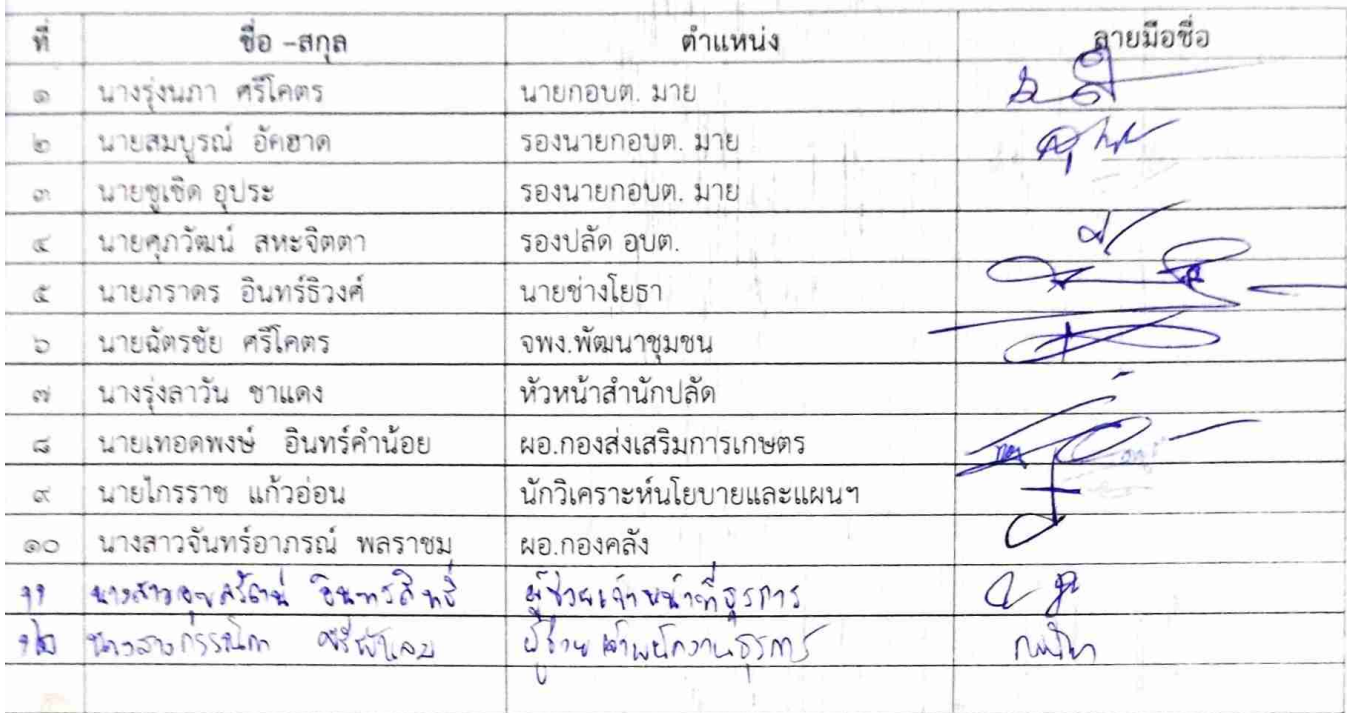 ที่ ชื่อ -สกุล ตำแหน่ง ลายมือชื่อ
๑ นางรุ่งนภา ศรีโคตร นายกอบต. มาย
๒ นายสมบูรณ์ อัคฮาด รองนายกอบต. มาย
๓ นายชูเชิด อุประ รองนายกอบต. มาย
๔ นายศุภวัฒน์ สหะจิตตา รองปลัด อบต.
๕ นายภราดร อินทร์ธิวงศ์ นายช่างโยธา
๖ นายฉัตรชัย ศรีโคตร จพง.พัฒนาชุมชน
๗ นางรุ่งลาวัน ขาแดง หัวหน้าสำนักปลัด
๘ นายเทอดพงษ์ อินทร์คำน้อย ผอ.กองส่งเสริมการเกษตร
๙ นายไกรราช แก้วอ่อน นักวิเคราะห์นโยบายและแผนฯ
๑๐ นางสาวจันทร์อาภรณ์ พลราชม ผอ.กองคลัง
๑๑ อินทรสิทธิ์ ผู้ช่วยเจ้าหน้าที่ธุรการ
๑๒ นางสาวกรรณิกา ผู้ช่วยเจ้าพนักงานธุรการ กรรณิกา